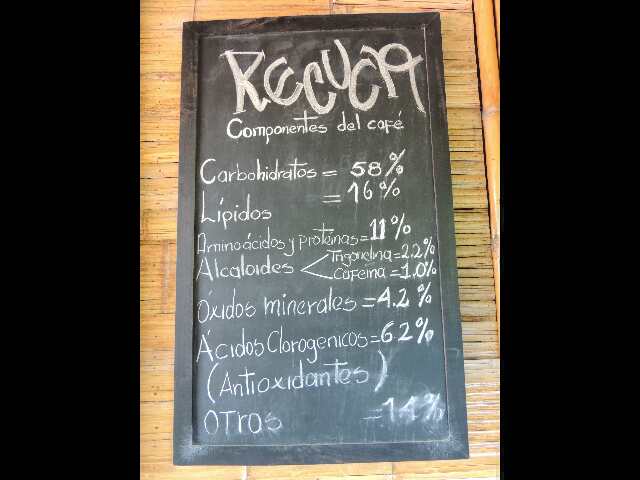 RECUCA
Componentes del café
Carbohidratos = 58%
Lípidos = 16%
Aminoácidos y proteínas = 11%
Alcaloides < Trigonelina = 2.2%
Cafeína = 1.0%
Óxidos minerales = 4.2%
Ácidos Clorogenicos = 62%
(Antioxidantes)
OTros = 14%